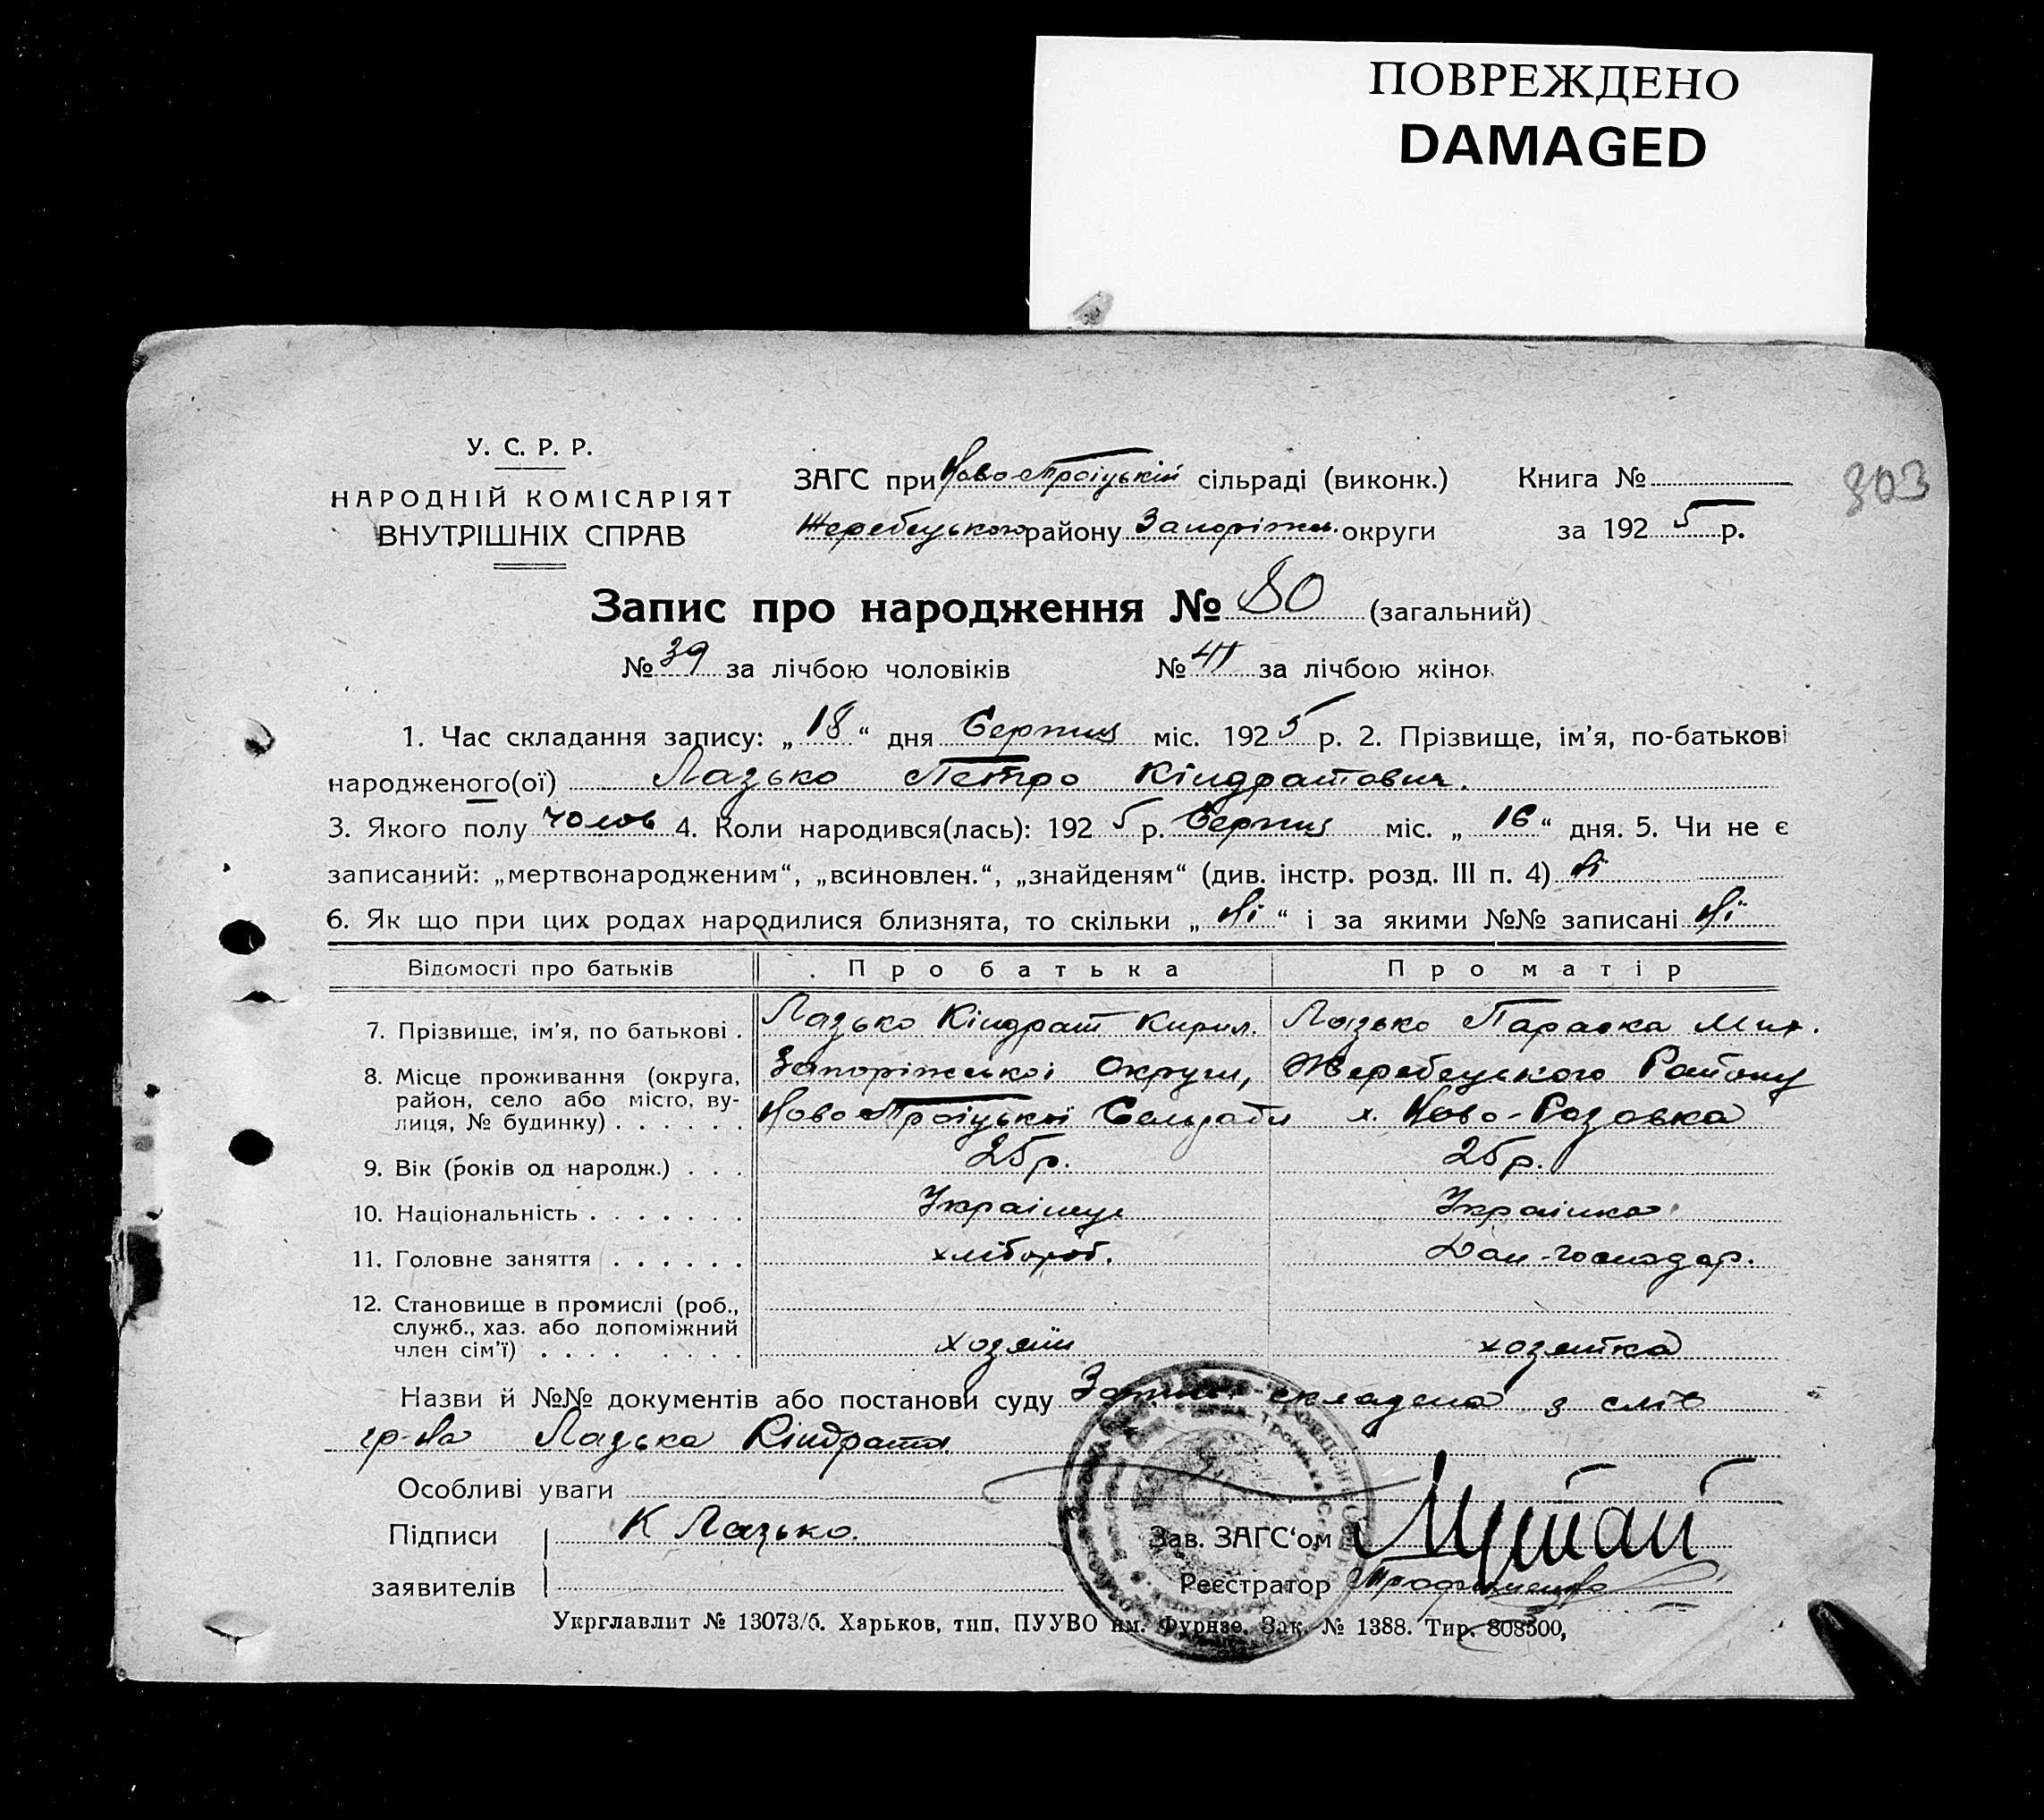 ПОВРЕЖДЕНО
DAMAGED
303
У. С. Р. Р.
НАРОДНІЙ КОМІСАРІЯТ
ВНУТРІШНІХ СПРАВ
ЗАГС при Ново Троіцькій сільраді (виконк.) Книга №
Жеребецького району Запоріжськ. округи за 1925 р.
Запис про народження № 80 (загальний)
№ 39 за лічбою чоловіків № 41 за лічбою жінок
1. Час складання запису: „18“ дня Серпня міс. 1925 р. 2. Прізвище, ім’я, по-батькові
народженого(ої) Лазько Петро Кіндратович.
3. Якого полу чолов 4. Коли народився(лась): 1925 р. Серпня міс. „16“ дня. 5. Чи не є
записаний: „мертвонародженим“, „всиновлен.“, „знайденям“ (див. інстр. розд. III п. 4) Ні
6. Як що при цих родах народилися близнята, то скільки „Ні“ і за якими №№ записані Ні
Відомості про батьків Про батька Про матір
7. Прізвище, ім’я, по батькові . Лазько Кіндрат Кирил. Лазько Параска Мих.
8. Місце проживання (округа, Запоріжської Округи, Жеребецького Району
район, село або місто, ву-
лиця, № будинку) . . . . . . Ново Троіцької Сельради х. Ново-Розовка
9. Вік (років од народж.) . . . 25 р. 25 р.
10. Національність . . . . . . . Українець Українка
11. Головне заняття . . . . . . хлібороб. Дом-господар.
12. Становище в промислі (роб.,
служб., хаз. або допоміжний
член сім’ї) . . . . . . . . хозяїн хозяйка
Назви й №№ документів або постанови суду Запис складена з слів
гр-на Лазька Кіндрата
Особливі уваги
Підписи К Лазько. Зав. ЗАГС‘ом
заявителів Реєстратор
Укрглавлит № 13073/б. Харьков, тип. ПУУВО им. Фурнзе. Зак. № 1388. Тир. 808500,